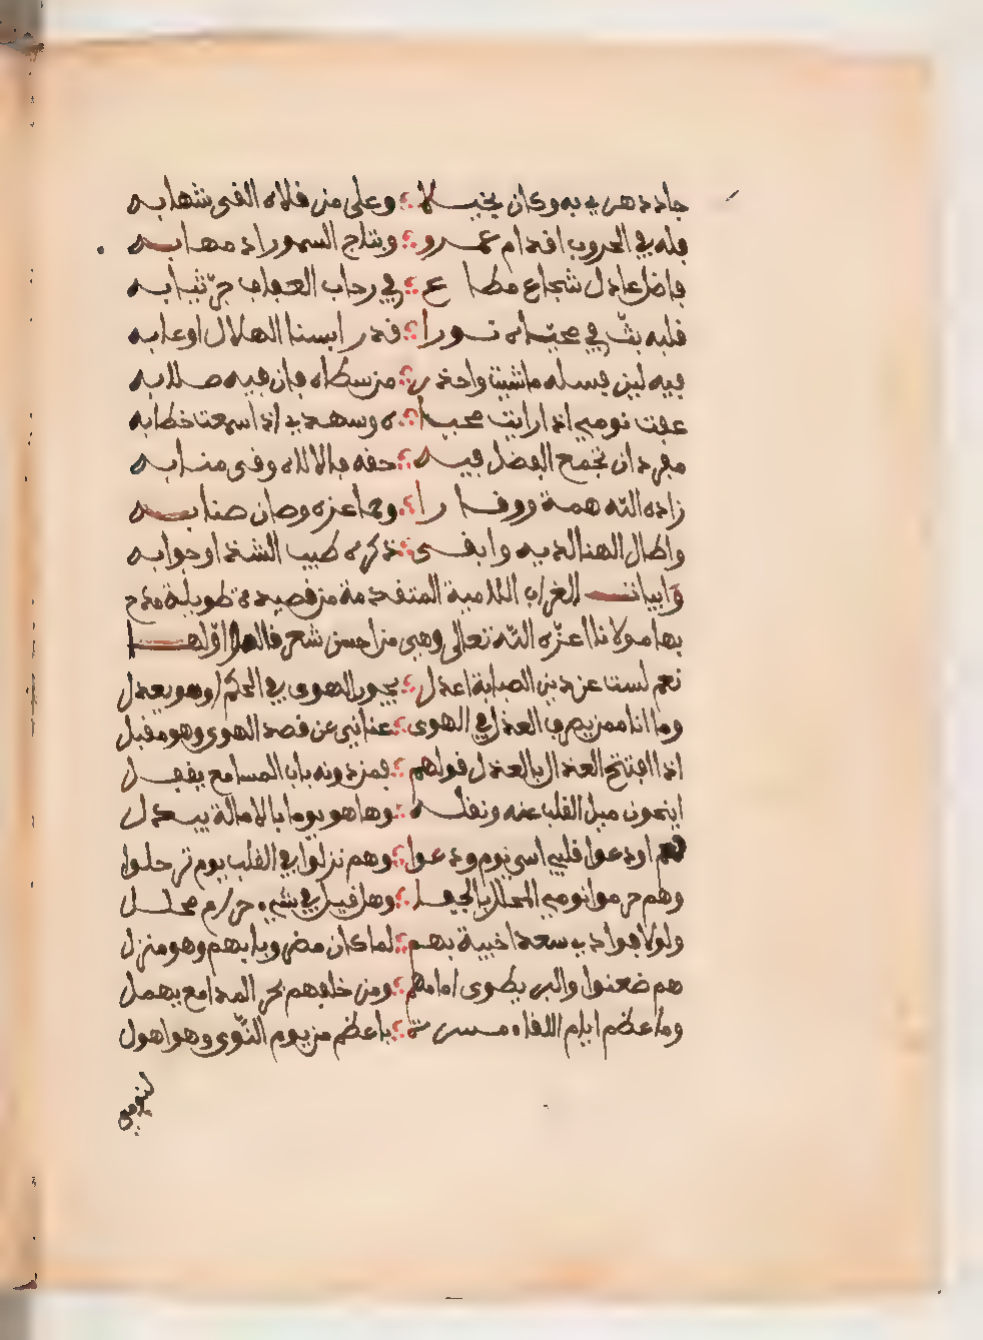 جاد دهري به وكان بخيـلا ؛ وعلى من فلاه القى شهابه
فله في الحروب اقدام عمـرو ؛ وبتاج السمو زاد مهـابـه
فاضل عادل شجاع مطـاع ؛ في رحاب العفاف جرّ ثيـابـه
فلبه بثّ في محيّـاه نـورا ؛ قد رابسنا الهلال اوعابه
فيه لين فسله ما شئت واحذر ؛ من سطاه فان فيه صـلابه
عفت نومي اذا رايت محيـاه ؛ وسهدي اذا سمعت خطابه
مفرد ان تجمع الفضل فيـه ؛ حفه بالالاه وفى منـابـه
زاده الله همة ووقـارا ؛ وحما عزه وصان جنـابـه
واطال الهنا لديه وابقـى ؛ ذكره طيب الشذا وجوابه
وابيات الغراب اللامية المتقدمة من قصيدة طويلة مدح
بها مولانا اعزّه الله تعالى وهي من احسن شعر قاله اوّلهـا
نعم لست عن دين الصبابة اعدل ؛ يجور الهوى في الحكم او هو يعدل
وما انا ممن يصرف العذل في الهوى ؛ عناني عن قصد الهوى وهو مقبل
اذا افتتح العذال بالعذل قولهم ؛ فمن دونه باب المسامع يقفـل
اينحون ميل القلب عنه ونقلـه ؛ وها هو يوما بالامالة يبـدل
هم اودعوا قلبي اسى يوم ودعوا ؛ وهم نزلوا في القلب يوم ترحلوا
وهم حرموا نومي المحلل بالجفـا ؛ وهل قيل في شيء حرام محلـل
ولولا فوادي سعد اخبية بهـم ؛ لما كان مضروبا بهم وهو منزل
هم ضعنوا والبر يطوى امامهم ؛ ومن خلفهم بحر المدامع يهمل
وما عظم ايام اللقاء مسـرة ؛ باعظم من يوم النّوى وهو اهول